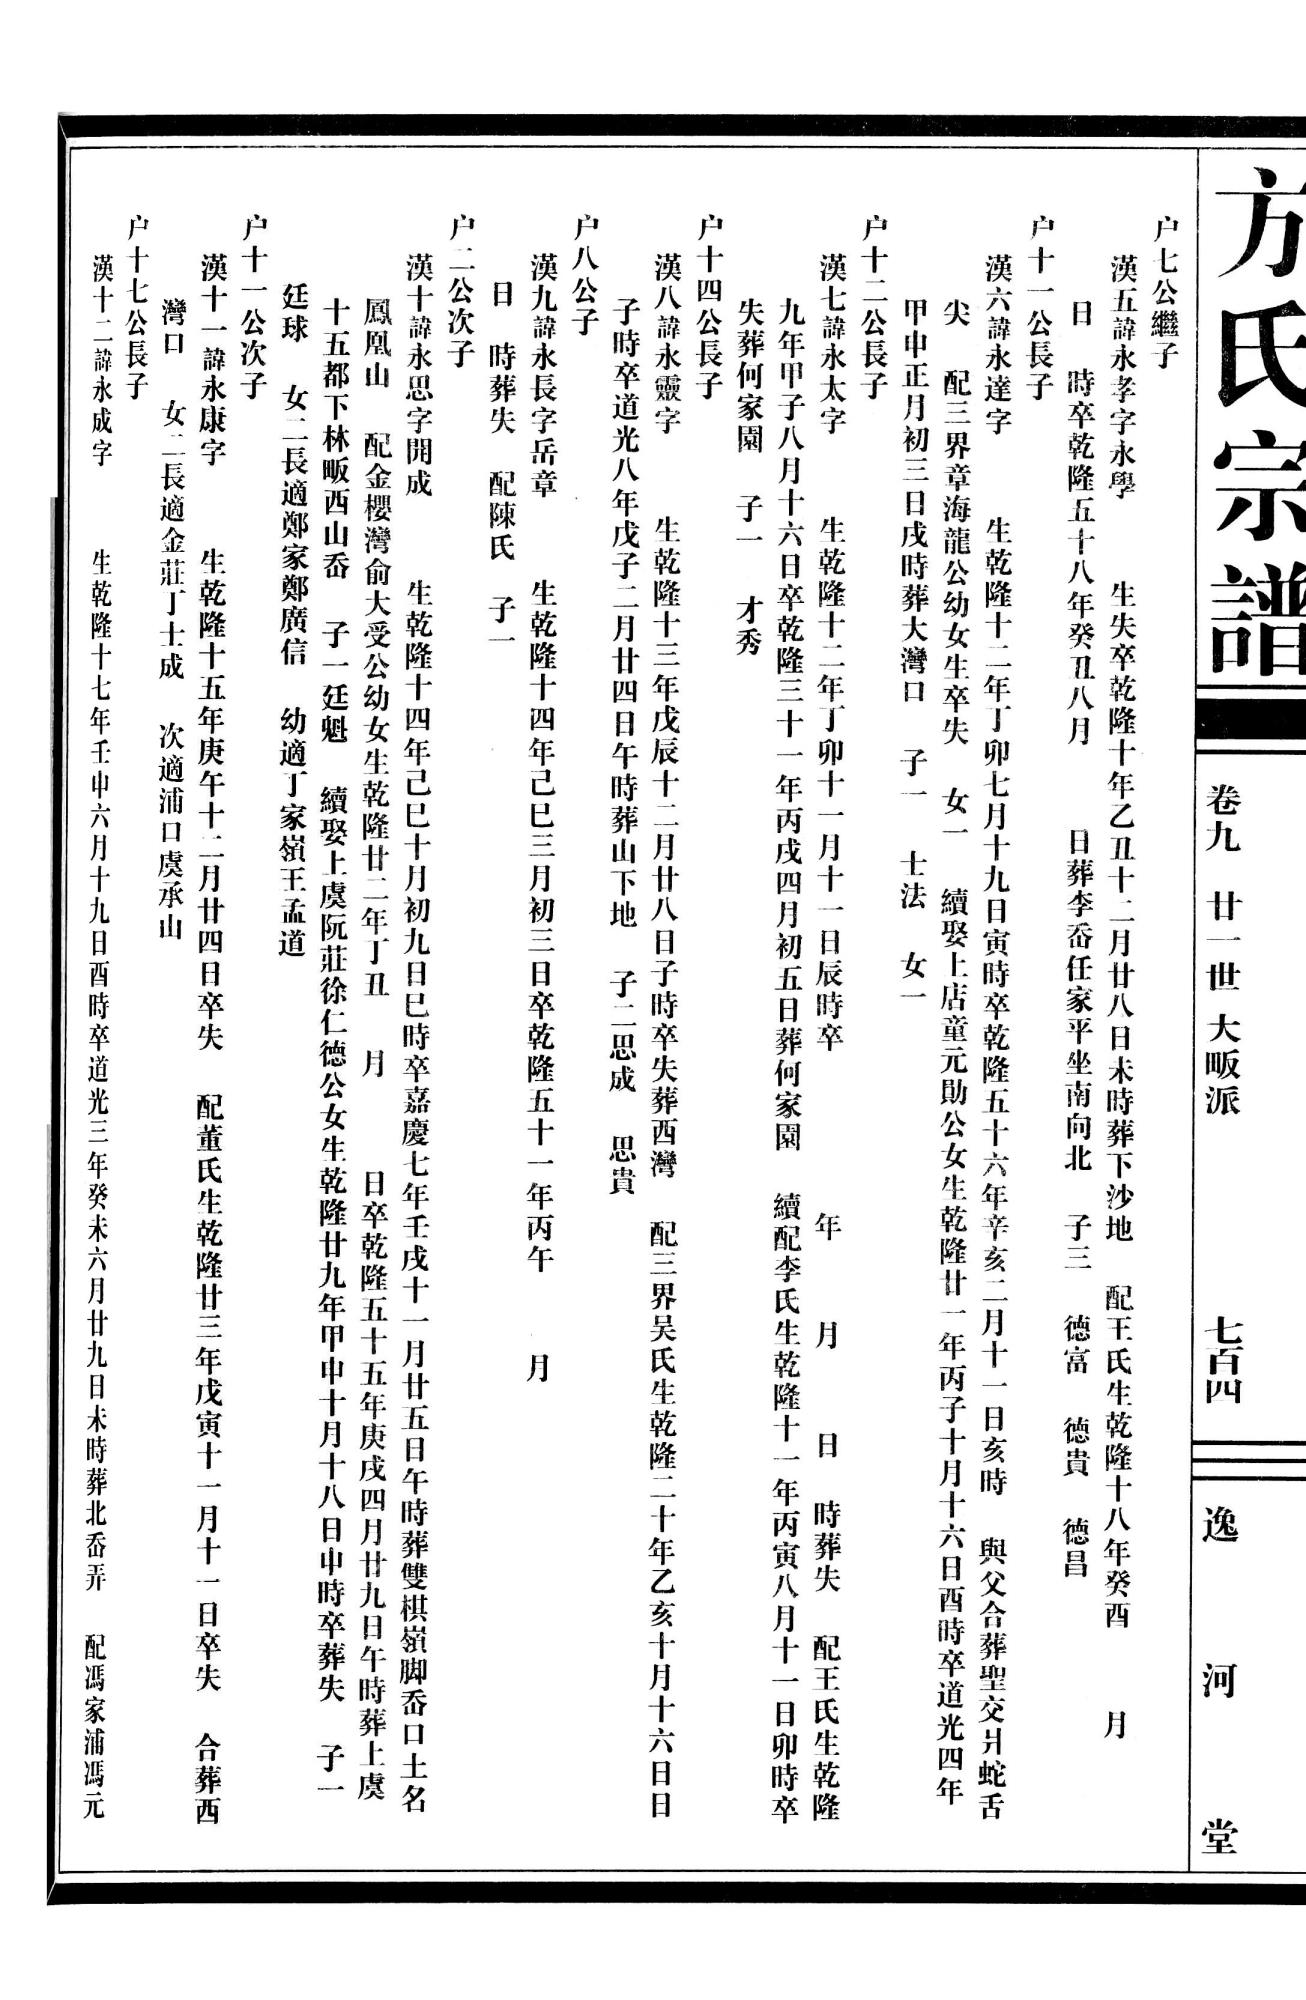 方氏宗譜
卷九 廿一世 大畈派 七百四
逸河堂
户七公繼子
漢五諱永孝字永學 生失卒乾隆十年乙丑十二月廿八日未時葬下沙地 配王氏生乾隆十八年癸酉 月
日 時卒乾隆五十八年癸丑八月 日葬李岙任家平坐南向北 子三 德富 德貴 德昌
户十一公長子
漢六諱永達字 生乾隆十二年丁卯七月十九日寅時卒乾隆五十六年辛亥二月十一日亥時 與父合葬聖交爿蛇舌
尖 配三界章海龍公幼女生卒失 女一 續娶上店童元勛公女生乾隆廿一年丙子十月十六日酉時卒道光四年
甲申正月初三日戌時葬大灣口 子一 士法 女一
户十二公長子
漢七諱永太字 生乾隆十二年丁卯十一月十一日辰時卒 年 月 日 時葬失 配王氏生乾隆
九年甲子八月十六日卒乾隆三十一年丙戌四月初五日葬何家園 續配李氏生乾隆十一年丙寅八月十一日卯時卒
失葬何家園 子一 才秀
户十四公長子
漢八諱永靈字 生乾隆十三年戊辰十二月廿八日子時卒失葬西灣 配三界吴氏生乾隆二十年乙亥十月十六日日
子時卒道光八年戊子二月廿四日午時葬山下地 子二思成 思貴
户八公子
漢九諱永長字岳章 生乾隆十四年己巳三月初三日卒乾隆五十一年丙午 月
日 時葬失 配陳氏 子一
户二公次子
漢十諱永思字開成 生乾隆十四年己巳十月初九日巳時卒嘉慶七年壬戌十一月廿五日午時葬雙棋嶺脚岙口土名
鳳凰山 配金櫻灣俞大受公幼女生乾隆廿二年丁丑 月 日卒乾隆五十五年庚戌四月廿九日午時葬上虞
十五都下林畈西山岙 子一廷魁 續娶上虞阮莊徐仁德公女生乾隆廿九年甲申十月十八日申時卒葬失 子一
廷球 女二長適鄭家鄭廣信 幼適丁家嶺王孟道
户十一公次子
漢十一諱永康字 生乾隆十五年庚午十二月廿四日卒失 配董氏生乾隆廿三年戊寅十一月十一日卒失 合葬西
灣口 女二長適金莊丁士成 次適浦口虞承山
户十七公長子
漢十二諱永成字 生乾隆十七年壬申六月十九日酉時卒道光三年癸未六月廿九日未時葬北岙弄 配馮家浦馮元